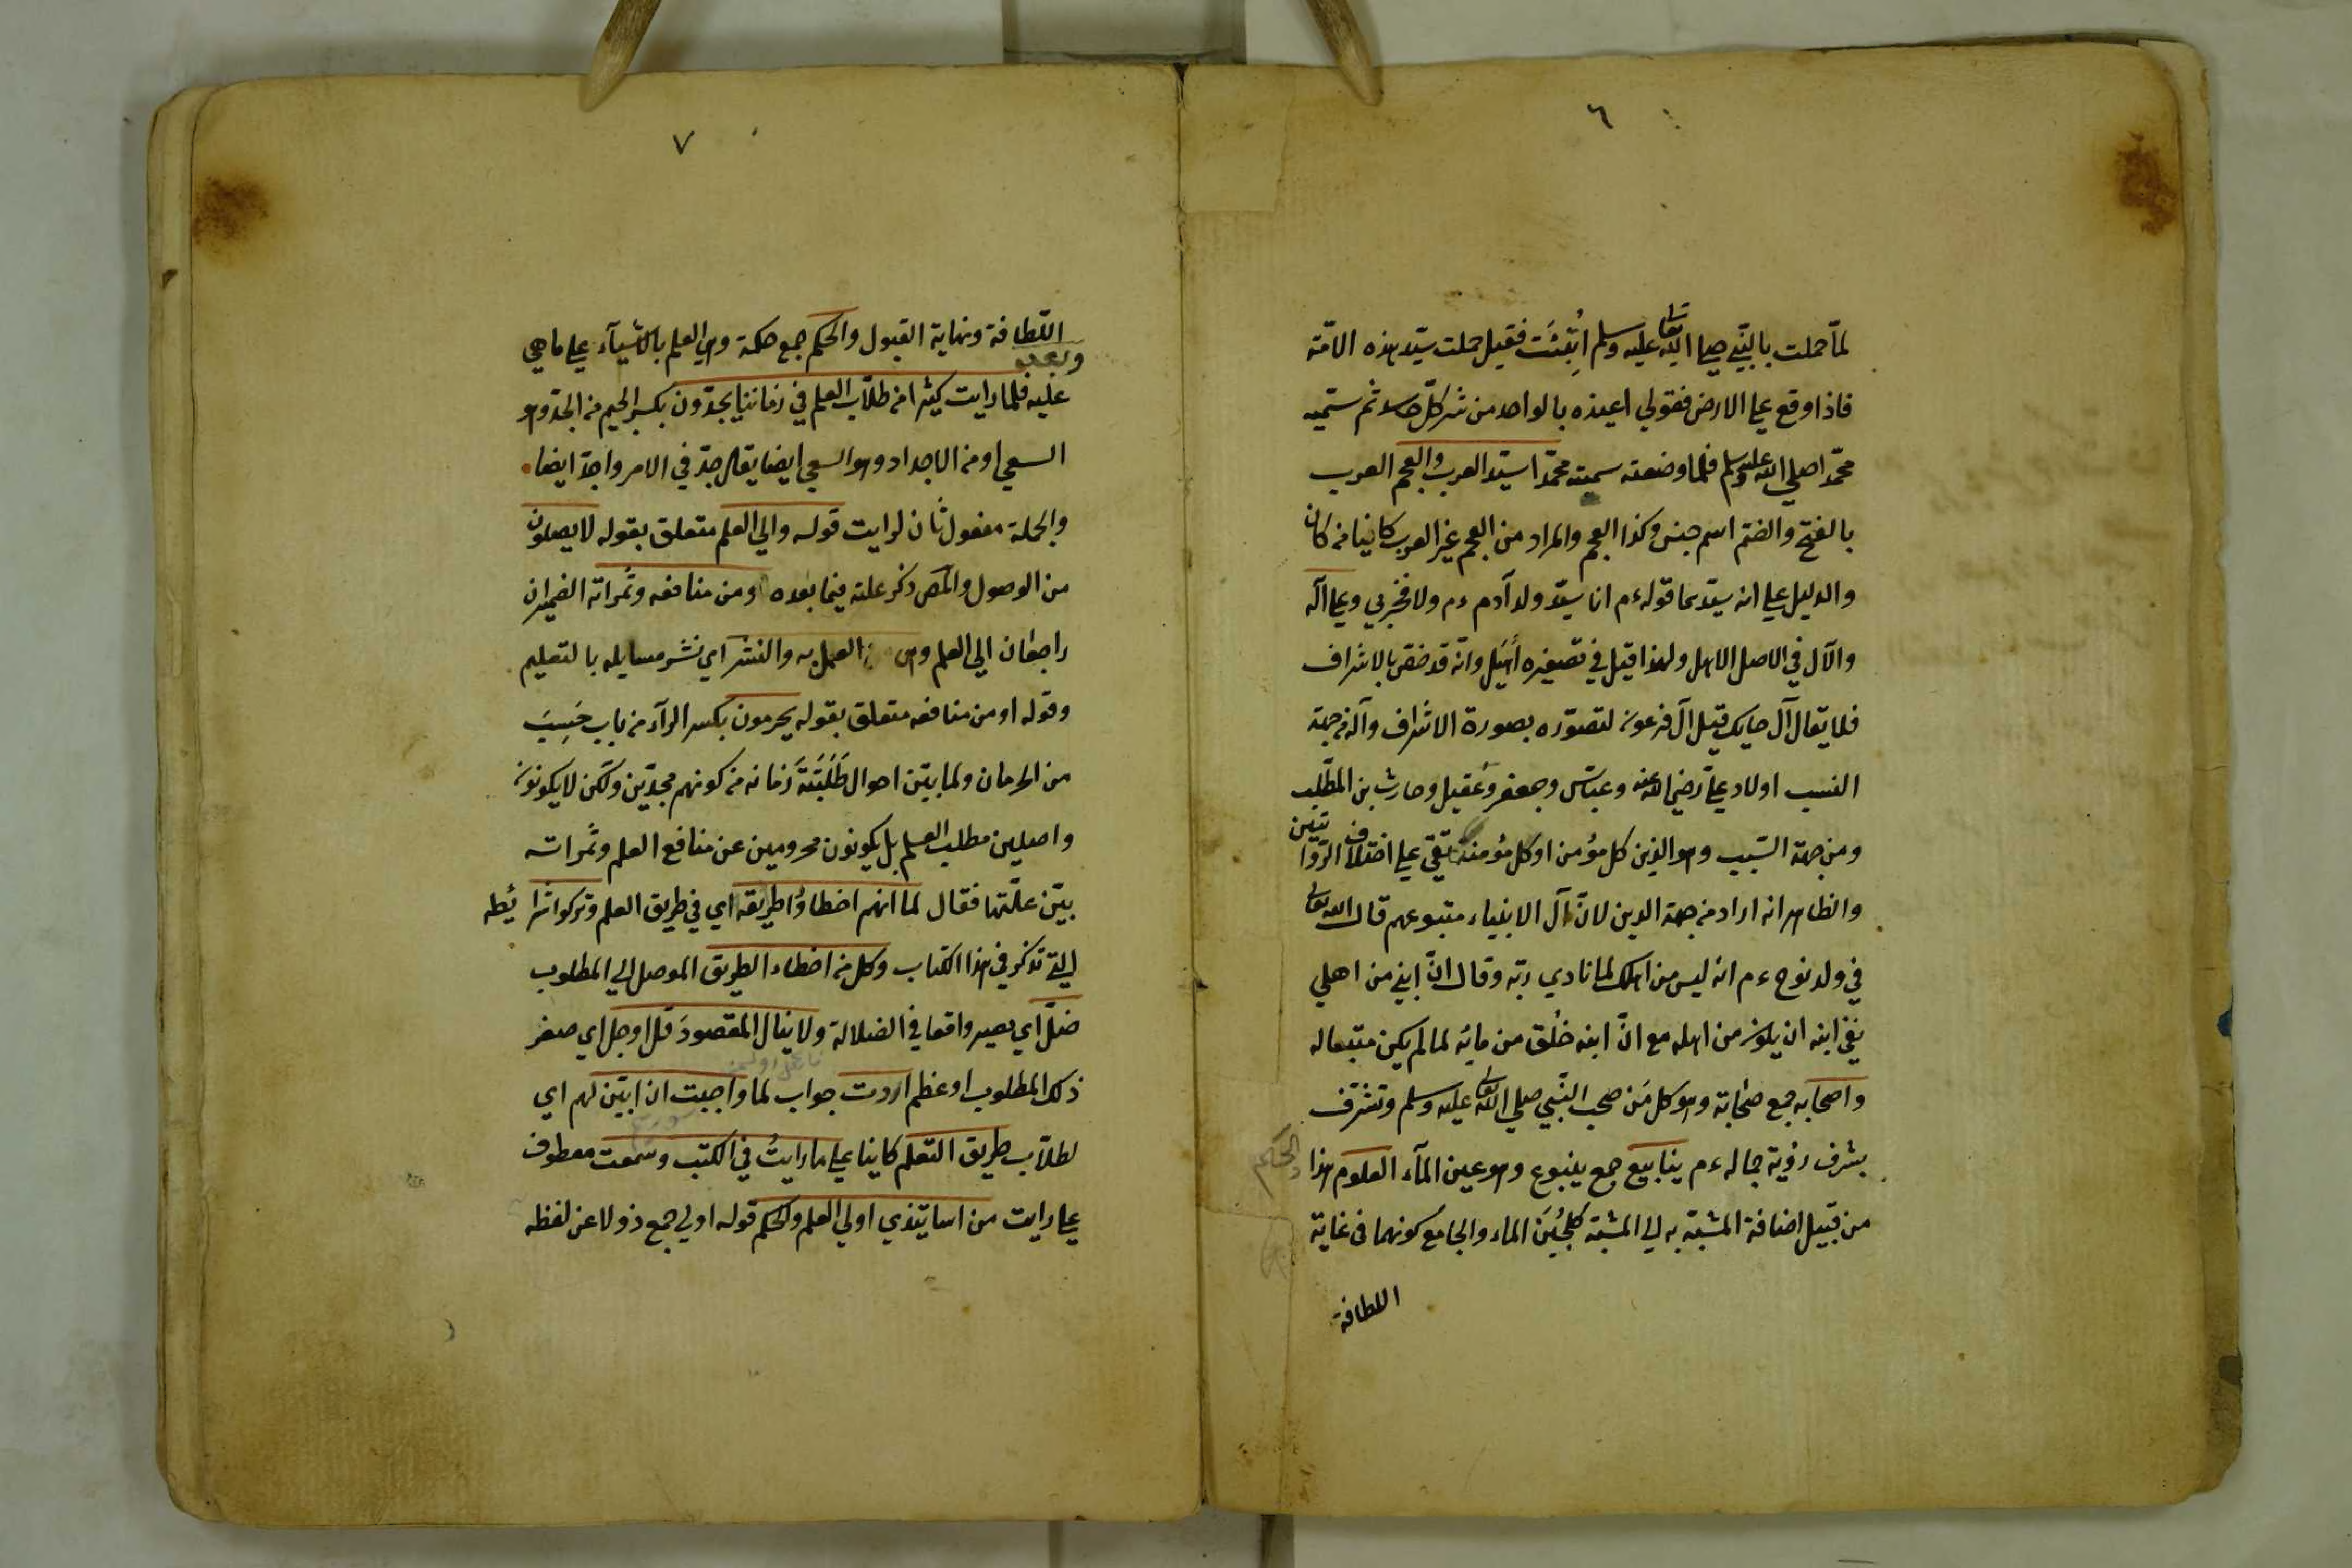 ٦
لمّا حملت بالنّبي صلى الله تعالى عليه وسلم اُتِيَتْ فقيل حملت سيّد هذه الامّة
فاذا وقع على الارض فقولي اعيذه بالواحد من شر كلّ حاسد ثم سمّيه
محمّدا صلى الله عليه وسلم فلما وضعته سمته محمّدا سيّد العرب والعجم العرب
بالفتح والضم اسم جنس وكذا العجم والمراد من العجم غير العرب كائنا من كان
والدليل على انه سيّدهما قوله ءم انا سيّد ولد آدم ءم ولا فخر بي وعلى آله
والآل في الاصل الاهل ولهذا قيل في تصغيره أُهَيل وانّه قد خصّ بالاشراف
فلا يقال آل حايك قيل آل فرعون لتصوّره بصورة الاشراف وآله من جهة
النسب اولاد علي رضي الله عنه وعباس وجعفر وعَقيل وحارث بن المطّلب
ومن جهة السّبب وهو الدين كل مؤمن او كل مؤمن تقي على اختلاف الرّوايتين
والظاهر انه اراد من جهة الدين لانّ آل الانبياء متبوعهم قال الله تعالى
في ولد نوح ءم انه ليس من اهلك لما نادى ربّه وقال انّ ابني من اهلي
نفى ابنه ان يكون من اهله مع انّ ابنه خُلق من مائه لما لم يكن متبعا له
واصحابه جمع صَحَابة وهو كل مَن صحب النّبي صلى الله تعالى عليه وسلم وتشرّف
بشرف رؤية جماله ءم ينابيع جمع ينبوع وهو عين المآء العلوم هذا
والحكم
من قبيل اضافة المشبّه به الى المشبّه كلُجَيْن الماء والجامع كونهما في غاية
اللطافة
٧
اللّطافة ونهاية القبول والحكم جمع حكمة وهي العلم بالاشيآء على ما هي
وبعد
عليه فلما رايت كثيرا من طلّاب العلم في زماننا يجدّون بكسر الجيم من الجدّ وهو
السعي او من الاجداد وهو السعي ايضا يقال جدّ في الامر واجدّ ايضا
والجملة مفعول ثان لرايت قوله والى العلم متعلق بقوله لا يصلون
من الوصول والمص ذكر علته فيما بعده او من منافعه وثمراته الضميران
راجعان الى العلم وهي العمل به والنشر اي نشر مسايله بالتعليم
وقوله او من منافعه متعلق بقوله يحرمون بكسر الرآء من باب حَسِبَ
من الحرمان ولما بيّن احوال طَلَبَتَه زمانه من كونهم مجدّين ولكن لا يكونون
واصلين مطلب العلم بل يكونون محرومين عن منافع العلم وثمراته
بيّن علّتها فقال لما انهم اخطاؤا طريقه اي في طريق العلم وتركوا شرائطه
التي تذكر في هذا الكتاب وكل من اخطاء الطريق الموصل الى المطلوب
ضلّ اي يصير واقعا في الضلالة ولا ينال المقصودَ قلّ او جلّ اي صغر
ذلك المطلوب او عظم اردت جواب لما واجبت ان ابيّن لهم اي
لطلاّب طريق التعلم كاينا على ما رايتُ في الكتب وسمعت معطوف
على رايت من اساتيذي اولي العلم والحكم قوله اولى جمع ذو لا عن لفظه